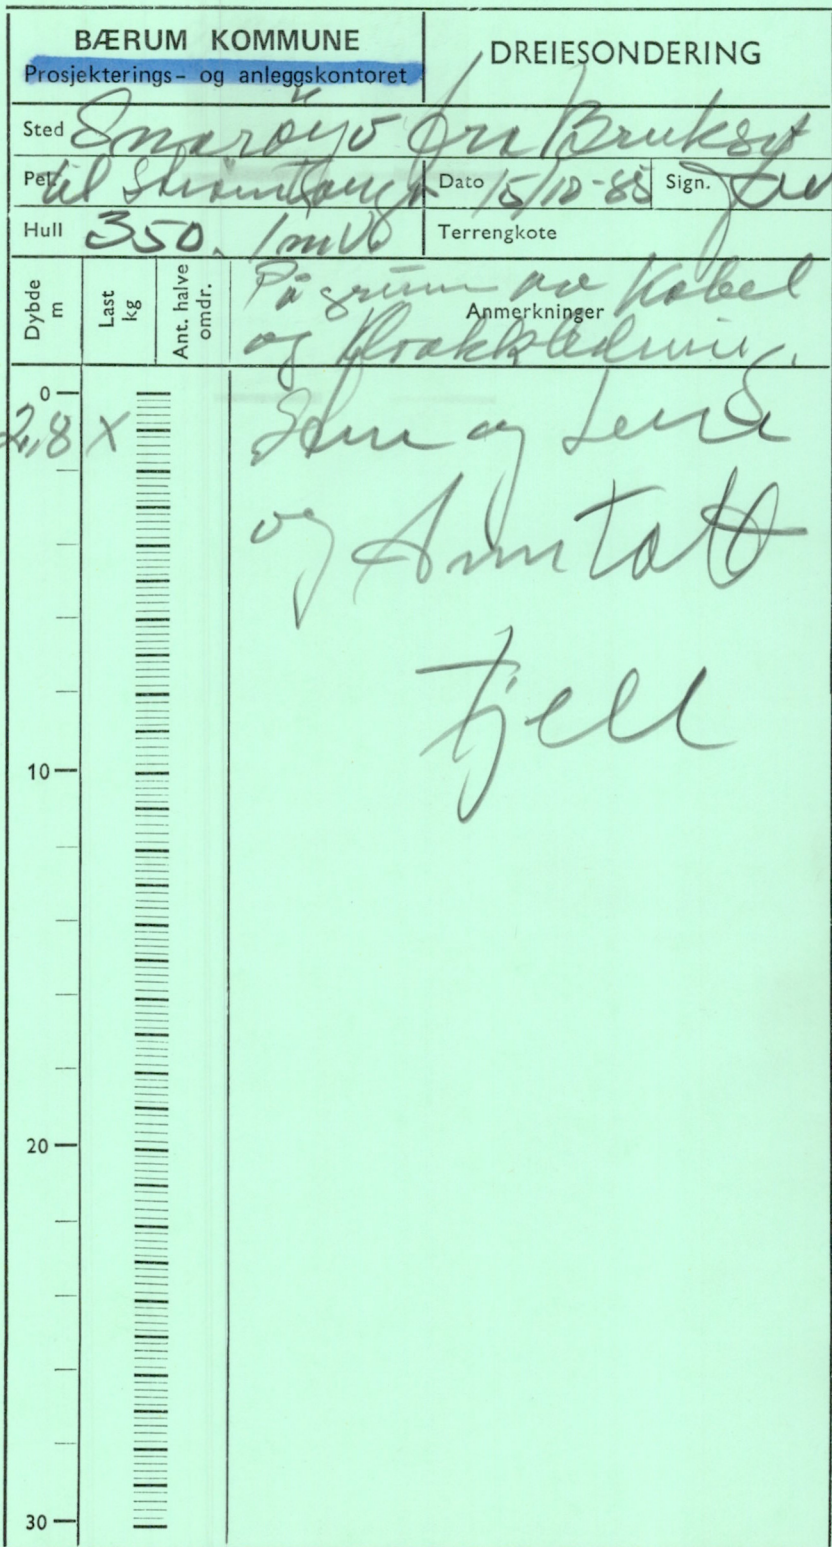 BÆRUM KOMMUNE
Prosjekterings- og anleggskontoret
DREIESONDERING
Sted Snarøyv fra Bruksv
Pel til Strømtangv Dato 15/10-85 Sign.
Hull 350. 1mVo Terrengkote
Dybde m
Last kg
Ant. halve omdr.
Anmerkninger
På grunn av Kabel
og Kloakkledning.
0
2,8 X
og
og Anntatt
Fjell
10
20
30